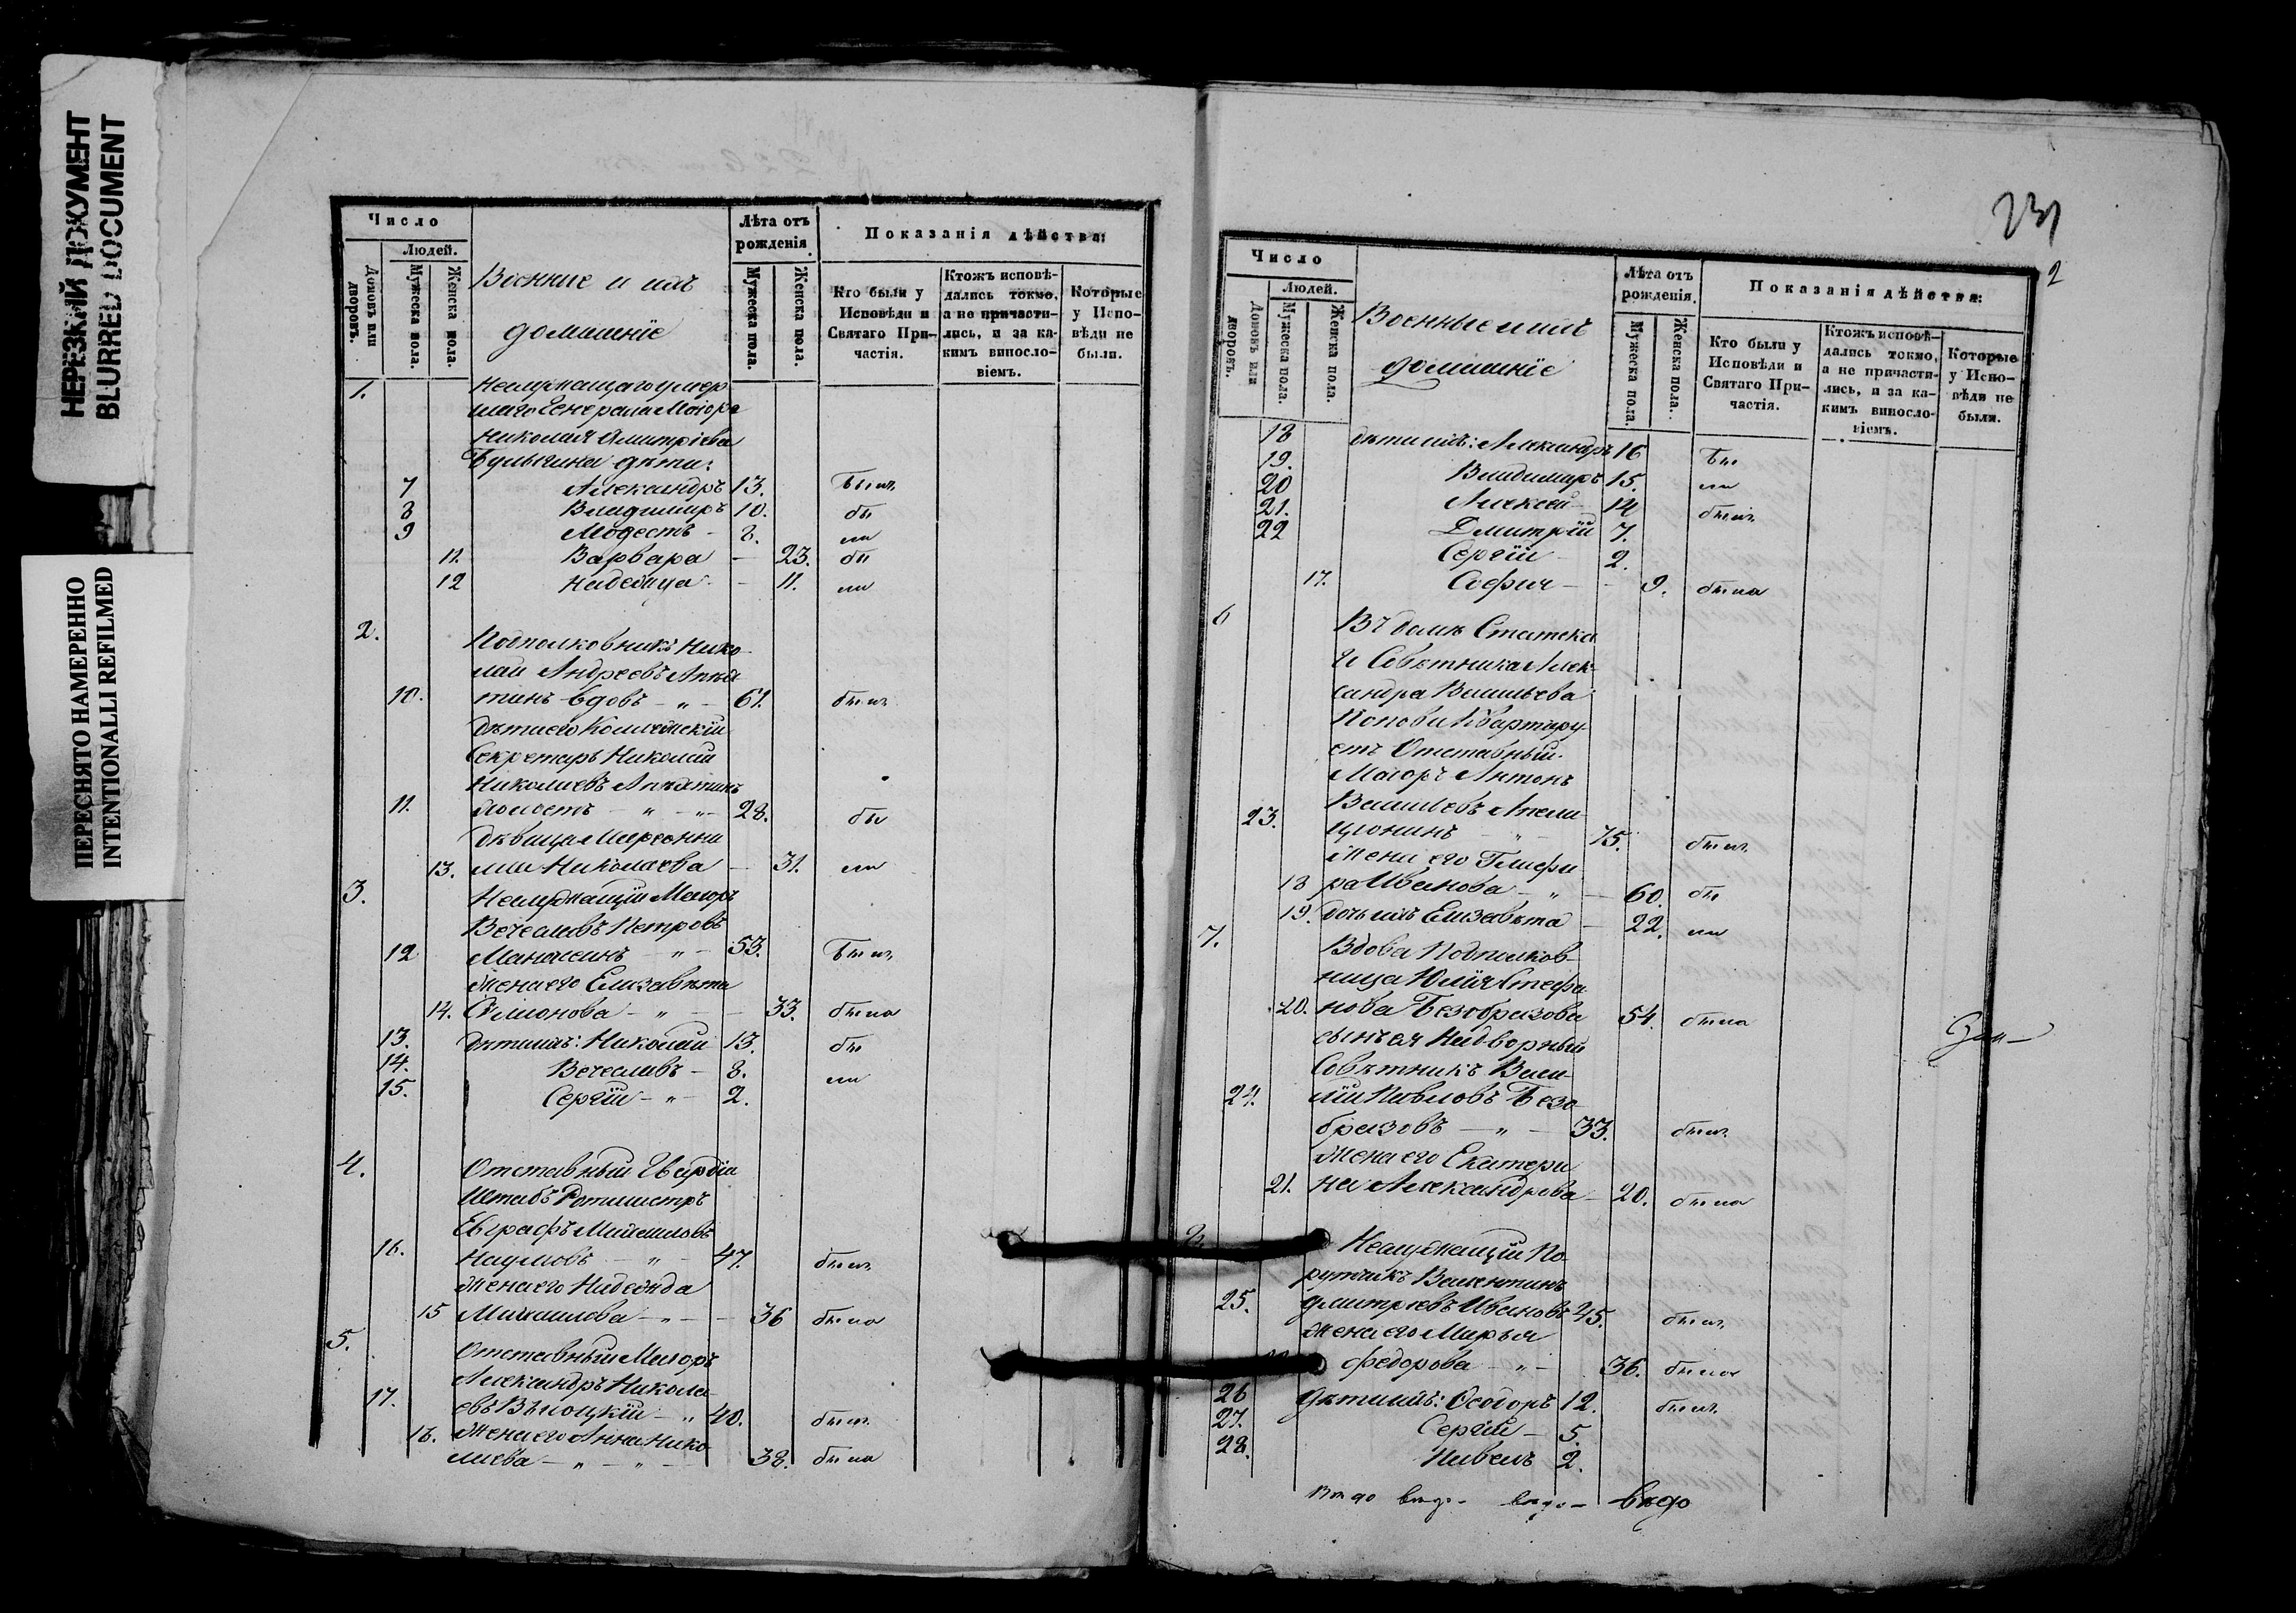 НЕРЕЗКИЙ ДОКУМЕНТ
BLURRED DOCUMENT
ПЕРЕСНЯТО НАМЕРЕННО
INTENTIONALLI REFILMED
Число
Людей.
Домовъ или дворовъ.
Мужеска пола.
Женска пола.
Военные и ихъ
домашніе
Лѣта отъ рожденія.
Мужеска пола.
Женска пола.
Показанія дѣйства:
Кто были у Исповѣди и Святаго Причастія.
Ктожъ исповѣ-
дались токмо,
а не причасти-
лись, и за ка-
кимъ винослο-
віемъ.
Которые
у Испо-
вѣди не
были.
1. Неслужащаго умер
шаго Генерала Маіора
Николая Дмитріева
Булыгина дѣти:
7 Александръ 13. былъ
8 Владиміръ 10. бы
9 Модестъ - 8. ли
11. Варвара - 23. бы
12 Надежда - 11. ли
2. Подполковникъ Нико
лай Андреевъ Апых
10. тинъ вдовъ - „ - 61. былъ
Дѣти его Коллежскій
Секретарь Николай
Николаевъ Апыхтинъ
11. холостъ - „ - 28. бы
Дѣвица
13. Николаева - 31. ли
3. Неслужащій Маіоръ
Вечеславъ Петровъ
12 Манасеинъ - „ - 53. былъ
Жена его Елизавѣта
14. Симонова - „ - 33. была
13. Дѣти ихъ: Николай 13. бы
14. Вечеславъ - 8. ли
15. Сергій - „ - 2.
4. Отставный Гвардіи
Штабъ Ротмистръ
Евграфъ Михаиловъ
16. Наумовъ - „ - 47. былъ
Жена его Надежда
15 Михаилова - „ - 36 была
5. Отставный Маіоръ
Александръ Никола
17. евъ - „ 40. былъ
16. Жена его Анна Нико
лаева - „ - „ - 38. была
231
2
Число
Людей.
Домовъ или дворовъ.
Мужеска пола.
Женска пола.
Военные и ихъ
домашніе
Лѣта отъ рожденія.
Мужеска пола.
Женска пола.
Показанія дѣйства:
Кто были у Исповѣди и Святаго Причастія.
Ктожъ исповѣ-
дались токмо,
а не причасти-
лись, и за ка-
кимъ винослο-
віемъ.
Которые
у Испо-
вѣди не
были.
18 дѣти ихъ: Александръ 16 бы
19. Владиміръ 15. ли
20 Алексей 14 былъ
21. Дмитрій 7.
22 Сергій 2.
17. Софія - 9. была
6 Въ домѣ Статска
го Совѣтника Алек
сандра Васильева
Попова Квартиру
етъ Отставный
Маіоръ Антонъ
Васильевъ
23. - „ - 75. былъ
Жена его Глафи
18 ра Иванова - „ - 60. бы
19. дочь ихъ Елизавѣта - 22. ли
7. Вдова Подполков-
ница Юлія Стефа
20. нова Безобразова 54. была
сынъ ея Надворный
Совѣтникъ Васи
24. лій Павловъ Безо
бразовъ - „ - 33. былъ
Жена его Екатери
21. на Александрова - 20. была
8. Неслужащій По
ручикъ Валентинъ
25. Дмитріевъ Ивановъ 45. былъ
Жена его Марья
Федорова - „ - 36. была
26 Дѣти ихъ: Ѳеодоръ 12. былъ
27. Сергій - 5.
28. Павелъ 2.